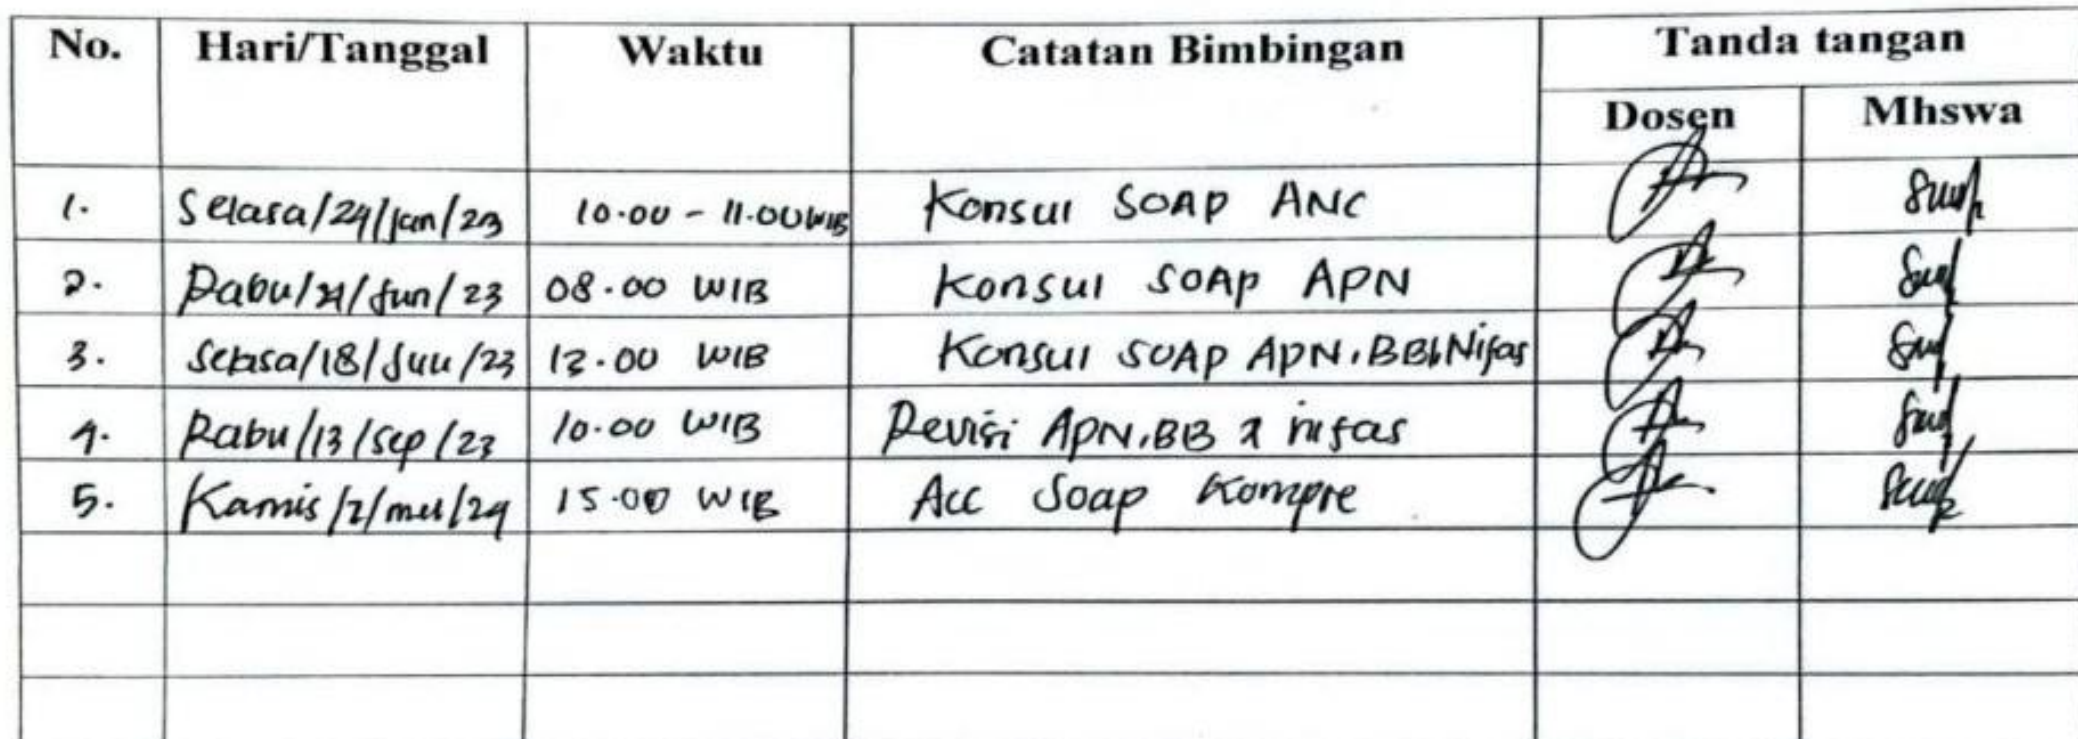 No. Hari/Tanggal Waktu Catatan Bimbingan Tanda tangan
Dosen Mhswa
1. Selasa/24/Jan/23 10.00 - 11.00 WIB Konsul SOAP ANC
2. Rabu/21/Jun/23 08.00 WIB Konsul SOAP APN
3. Selasa/18/Juli/23 13.00 WIB Konsul SOAP APN, BBL Nifas
4. Rabu/13/Sep/23 10.00 WIB Revisi APN, BB & nifas
5. Kamis/2/mei/24 15.00 WIB Acc Soap Kompre